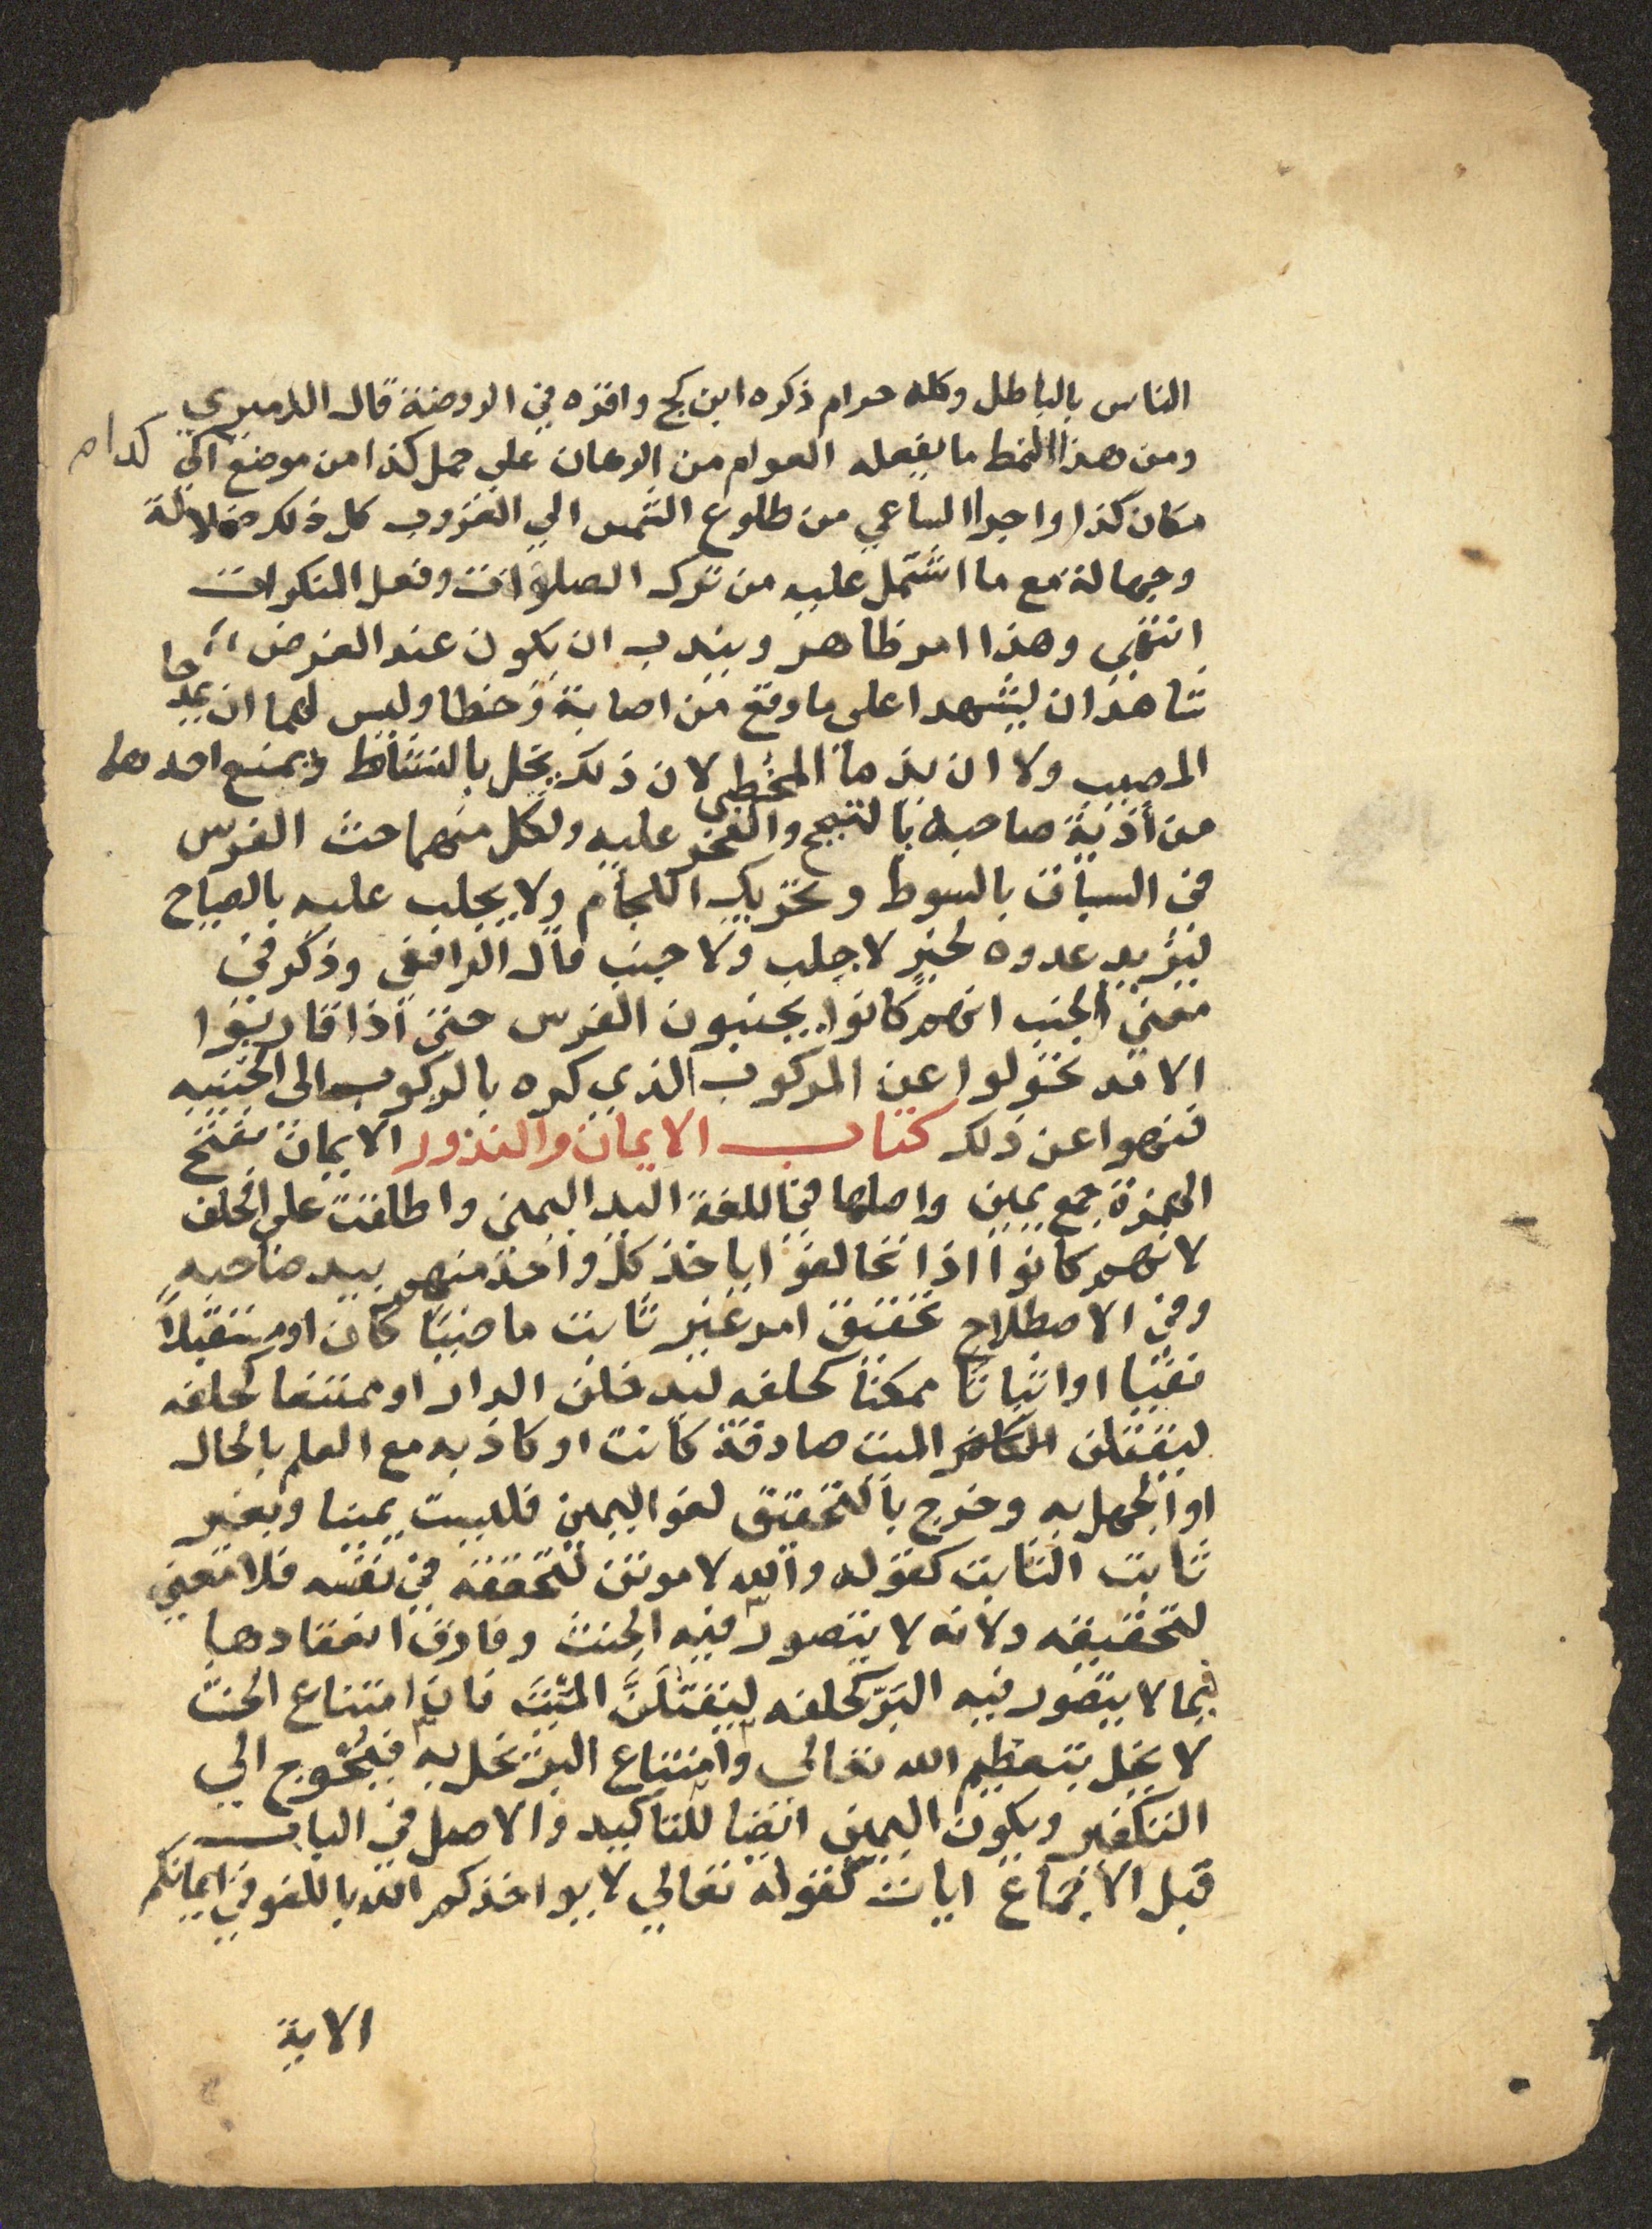 الناس بالباطل وكله حرام ذكره ابن كج واقره في الروضة قال الدميري
ومن هذا النمط ما يفعله العوام من الرهان علي حمل كذا من موضع الي كذا
مكان كذا واجرا الساعي من طلوع الشمس الي الغروب كل ذلك ضلالة
وجهالة مع ما اشتمل عليه من ترك الصلاوات وفعل المنكرات
انتهي وهذا امر ظاهر ويندب ان يكون عند الغرض
شاهدان ليشهدا علي ما وقع من اصابة وخطا وليس لهما ان يمدحا
المصيب ولا ان يذما المخطي لان ذلك يخل بالنشاط ويمنع احدهما
من أذية صاحبه بالتبجح والفخر عليه ولكل منهما حث الفرس
في السباق بالسوط وتحريك اللجام ولا يجلب عليه بالصياح
ليزيد عدوه لخبر لا جلب ولا جنب قال الرافعي وذكر في
معني الجنب انهم كانوا يجنبون الفرس حتي اذا قاربوا
الامد تحولوا عن المركوب الذي كره بالركوب الى الجنيبه
فنهوا عن ذلك كتاب الايمان والنذور الايمان بفتح
الهمزة جمع يمين واصلها في اللغة اليد اليمني واطلقت علي الحلف
لانهم كانوا اذا تحالفوا ياخذ كل واحد منهم بيد صاحبه
وفي الاصطلاح تحقيق امر غير ثابت ماضيًا كان او مستقبلاً
نفيا او اثباتا ممكنا كحلفه ليدخلن الدار او ممتنعا كحلفه
ليقتلن الميت صادقة كانت او كاذبه مع العلم بالحال
او الجهل به وخرج بالتحقيق لغو اليمين فليست يمينا وبغير
ثابت الثابت كقوله والله لاموتن لتحققه في نفسه فلا معني
لتحقيقه ولانه لا يتصور فيه الحنث وفارق انعقادها
فيما لا يتصور فيه البرّ كحلفه ليقتلَنَّ الميّت فان امتناع الحنث
لا يخل بتعظيم الله تعالي وامتناع البر يخل به فيُحوج الي
التكفير ويكون اليمين ايضا للتاكيد والاصل في الباب
قبل الاجماع ايات كقوله تعالي لا يواخذكم الله باللغو في ايمانكم
الاية